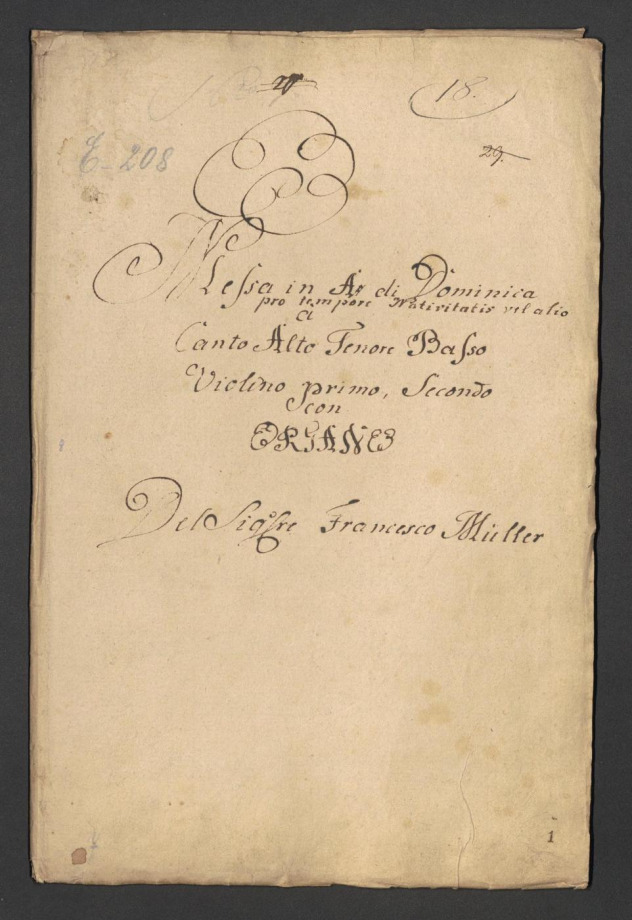 18.
29.
E-208
Messa in A# di Dominica
pro tempore Nativitatis vel alio
a
Canto Alto Tenore Basso
Violino primo, Secondo
con
ORGANO
Del Sigre Francesco Müller
1